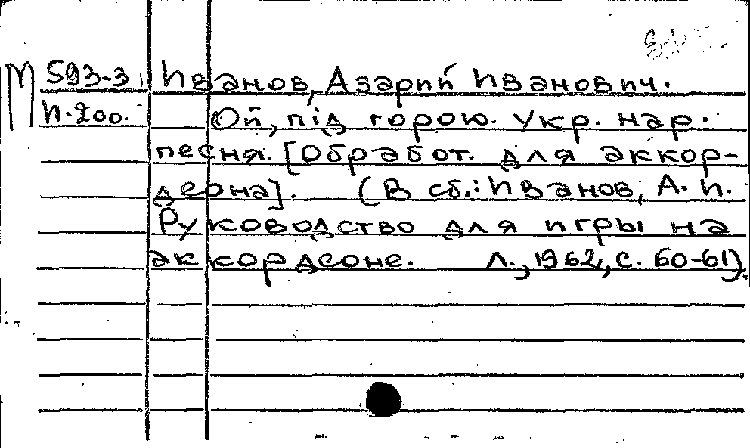 М 593-3 Иванов, Азарий Иванович.
И-200. Ой, під горою. Укр. нар.
песня. [Обработ. для аккор-
деона]. (В сб.: Иванов, А. И.
Руководство для игры на
аккордеоне. Л., 1962, с. 60-61).